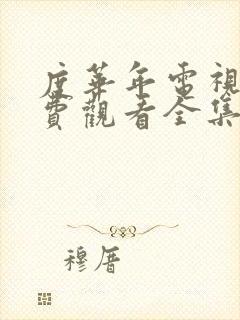 度華年電視
費觀看全集
穆厝